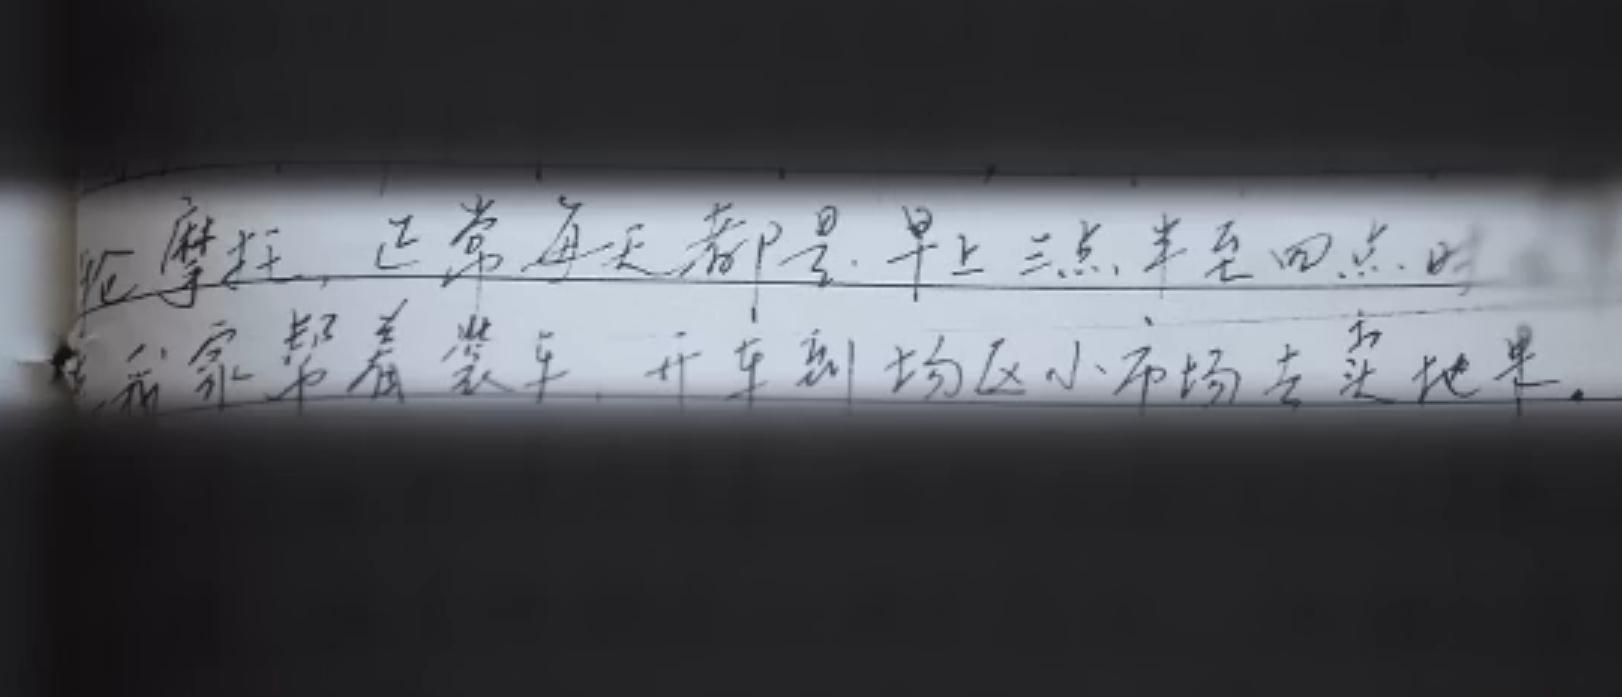 轮摩托,正常每天都是.早上三点半至四点.时
我家帮着装车.开车到场区小市场去卖地果.